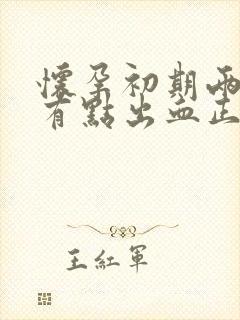 懷孕初期兩
有點出血正
王紅軍